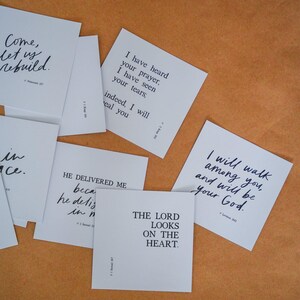 Come,
let us
rebuild.
I have heard
your prayer,
I have seen
your tears.
indeed I will
heal you
in
HE DELIVERED ME
beca
he deli
in m
I will walk
among you,
and will be
your God.
THE LORD
LOOKS
ON THE
HEART.